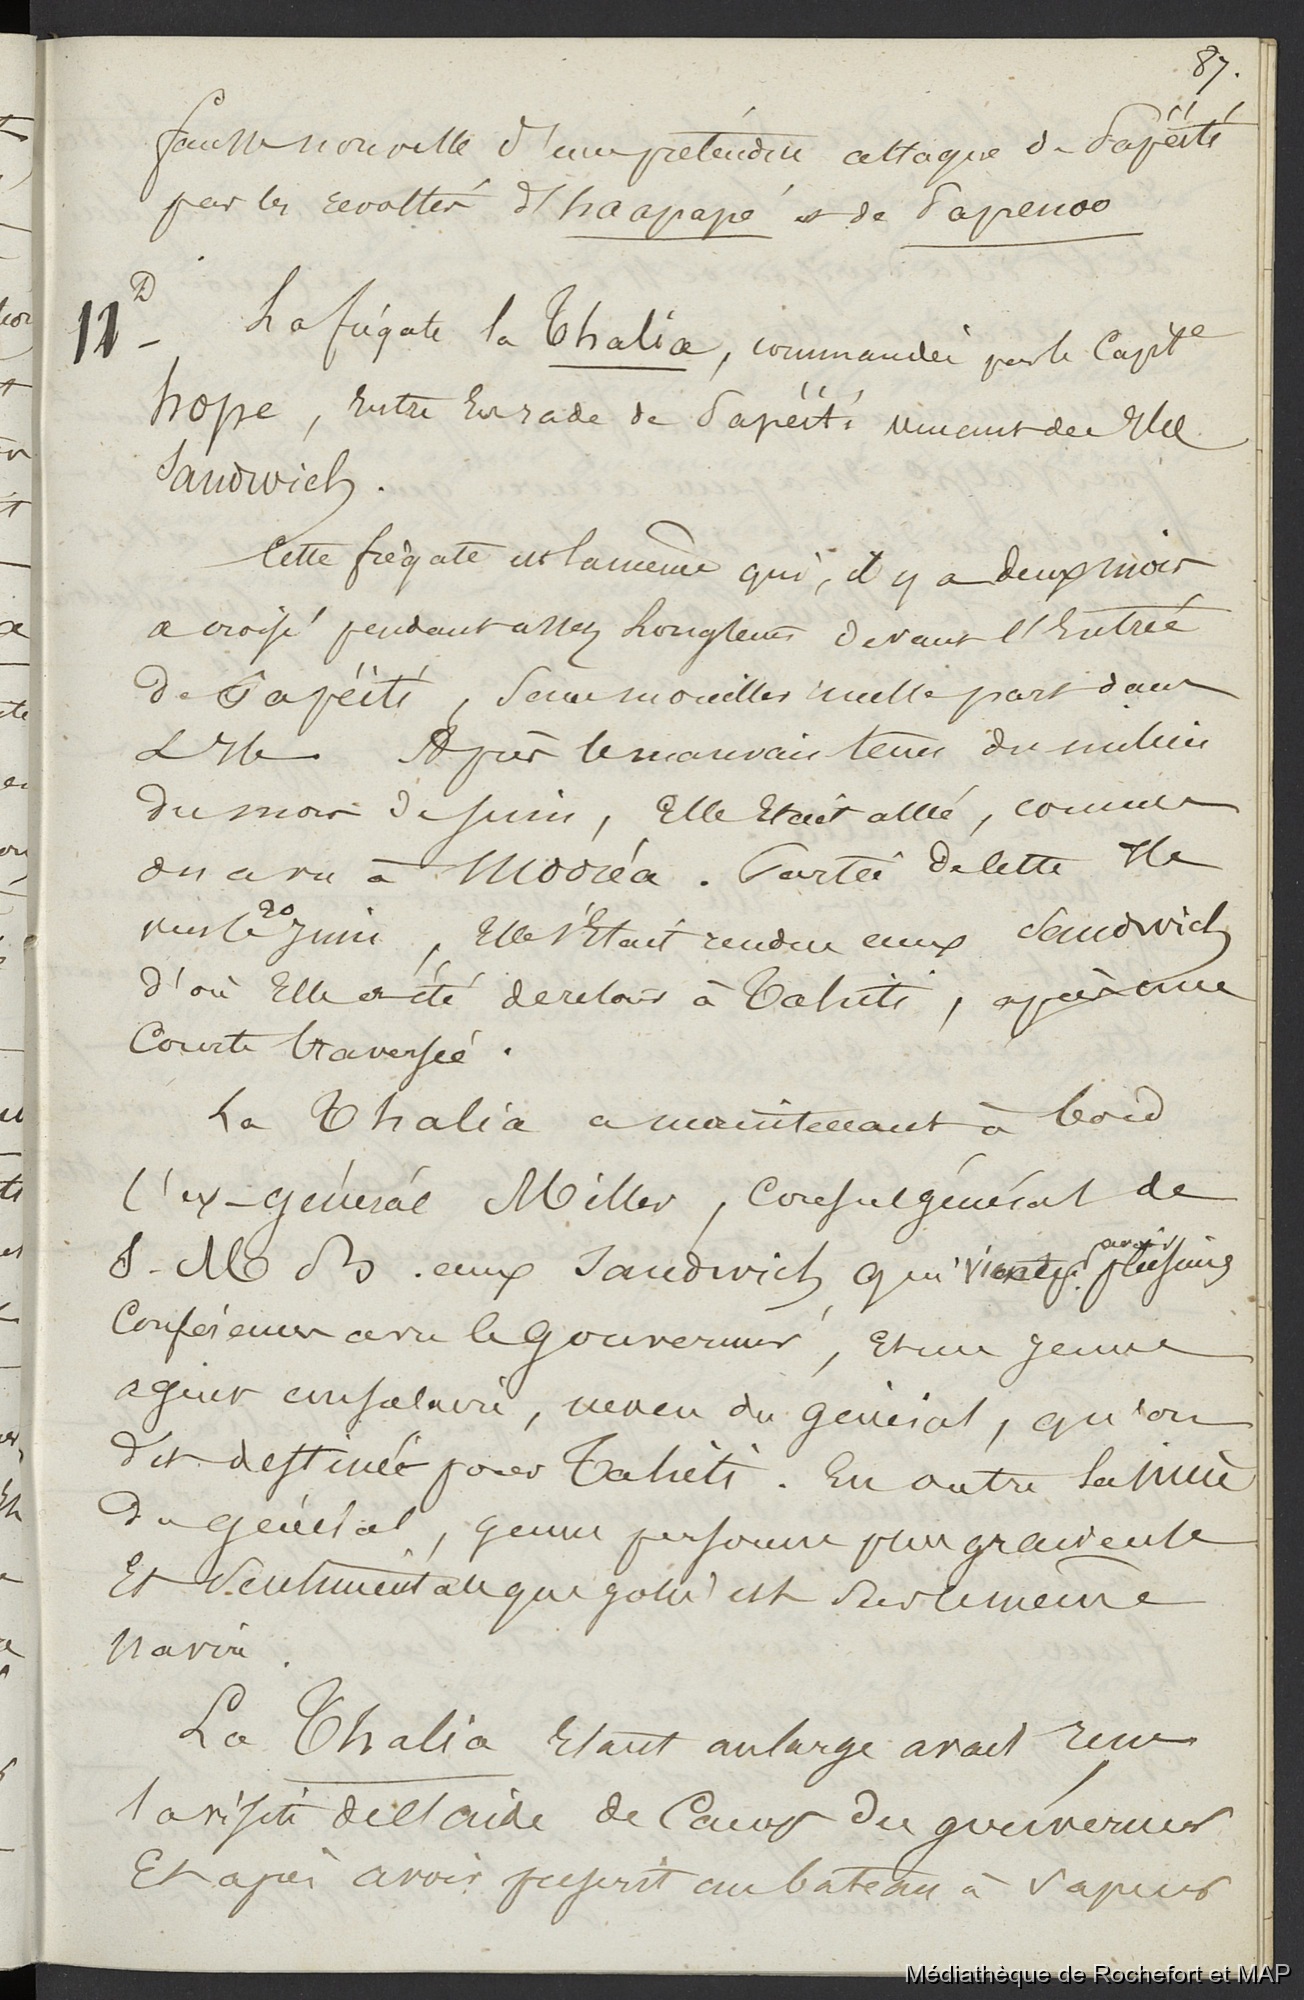 87.
fausse nouvelle d'une prétendue attaque de Papéïti
par les révoltés d'haapapé et de Papenoo
11 D - La frégate la Thalia, commandée par le Capite
hope, Entre En rade de Papéïti venant des Iles
Sandwich.
Cette frégate est la même qui, il y a deux mois
a croisé pendant assez Longtems devant l'Entrée
de Papéïti, sans mouiller nulle part dans
L'Ile. Après le mauvais tems du milieu
du mois de juin, Elle Etait allée, comme
on a vu à Mooréa. Partie de cette Ile
vers le 20 juin, Elle s'Etait rendue aux Sandwich
d'où Elle a été de retour à Tahiti, après une
Courte traversée.
La Thalia a maintenant à bord
l'ex-général Miller, Consul général de
S. M. B. aux Sandwich qui vient d'avoir plusieurs
Conférences avec le gouverneur, Et un jeune
agent consulaire, neveu du général, qu'on
dit destiné pour Tahiti. En outre la nièce
du général, jeune personne plus
Et sentimentale que jolie est sur le même
navire.
La Thalia Etant au large avait reçu
la visite de l'aide de Camp du gouverneur
Et après avoir au bateau à vapeur
Médiathèque de Rochefort et MAP